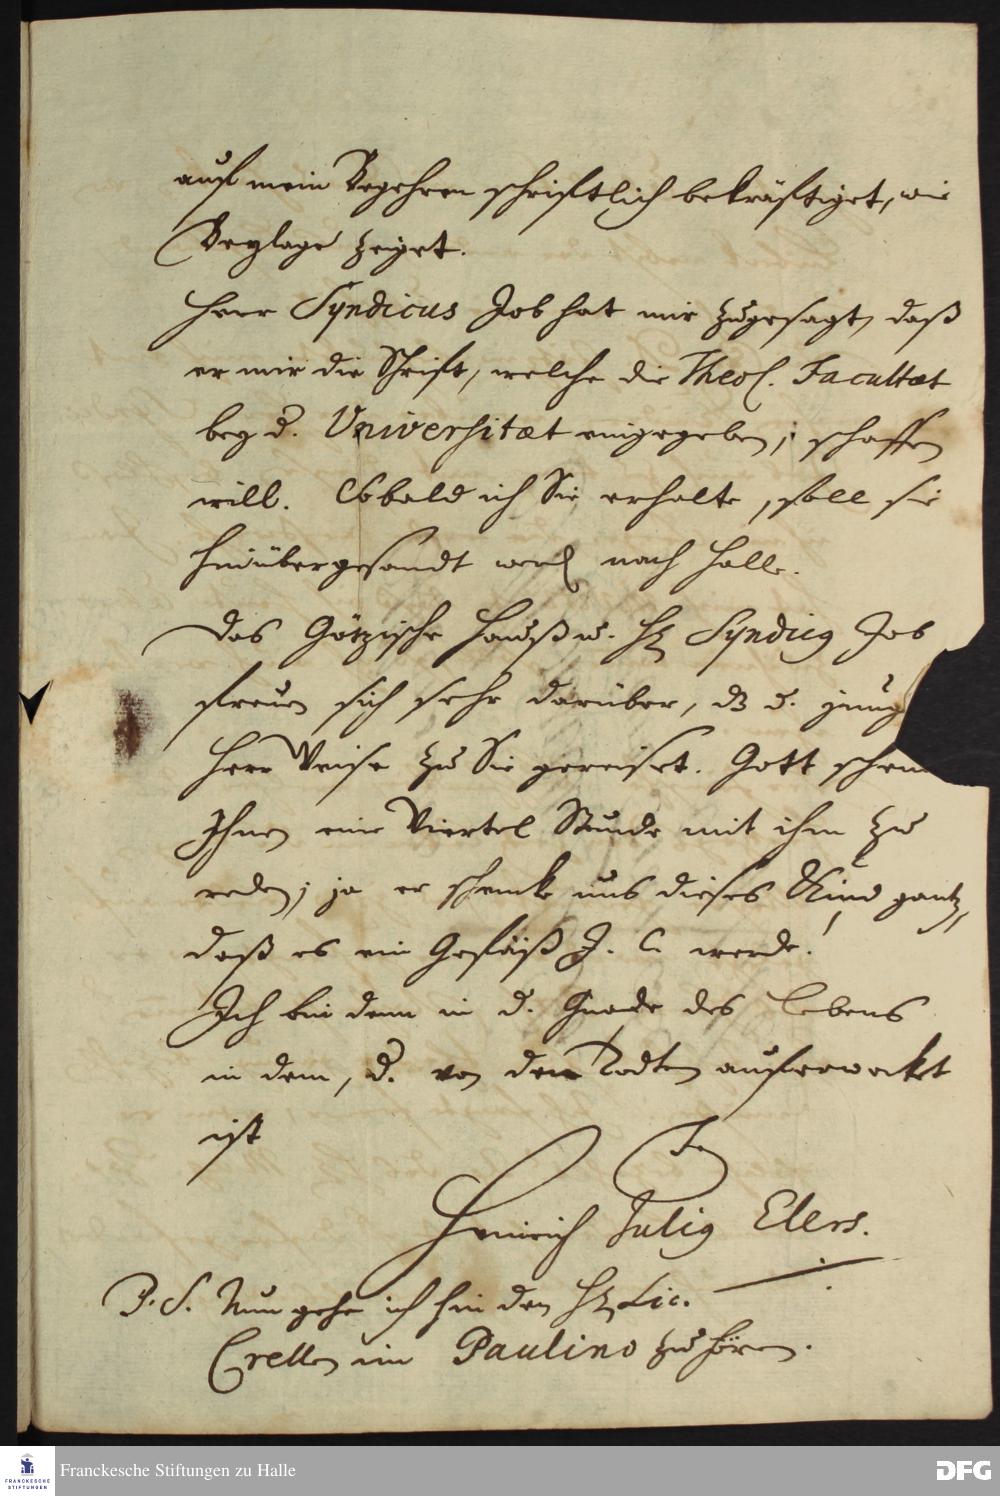 auf mein Begehren schrifftlich bekräfftiget, wie
Beylage zeiget.
Herr Syndicus Job hat mir zugesagt, daß
er mir die Schrifft, welche die Theol. Facultæt
bey d. Universitæt eingegeben, schaffen
will. So bald ich Sie erhalte, soll sie
hinübergesandt werd nach Halle.
Das Götzische Hauß u. H Syndicq Job
freuen sich sehr darüber, dß d. jung
Herr Weise zu Sie gereiset. Gott schen
Ihnen eine Viertel Stunde mit ihm zu
reden; ja er schencke uns dieses Kind gantz,
daß es ein Gefäß J. C. werde!
Ich bin denn in d. Gnade des Lebens
in dem, d. von den Todten auferwecket
ist
Ihr
Heinrich Julig Elers.
P. S. Nun gehe ich hin den H Lic.
Crellen im Paulino zu hören.
Franckesche Stiftungen zu Halle
FRANCKESCHE
STIFTUNGEN
DFG